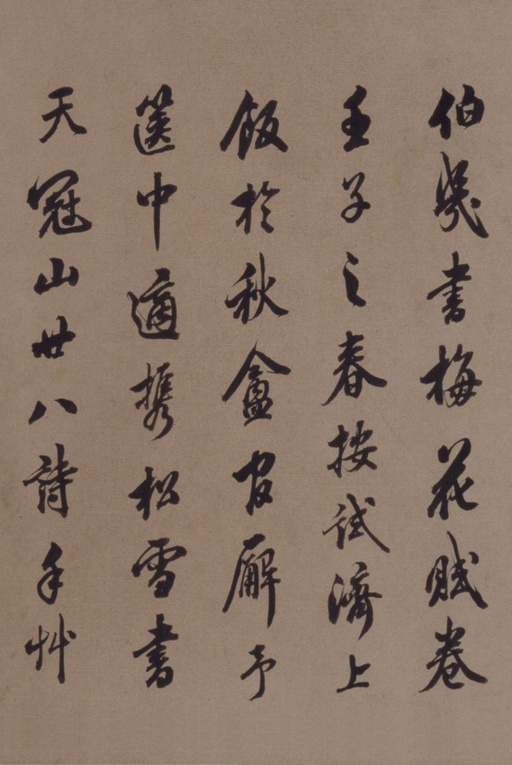 伯幾書梅花賦卷
壬子之春按試濟上
飯於秋盦官廨予
篋中適攜松雪書
天冠山廿八詩手艸